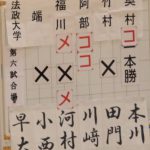 奥村
コ
一本勝
竹村
×
阿部
コ
コ
福川
メ
×
メ
端
×
法政大学
第六試合場
本川
田門
川﨑
河村
小西
早